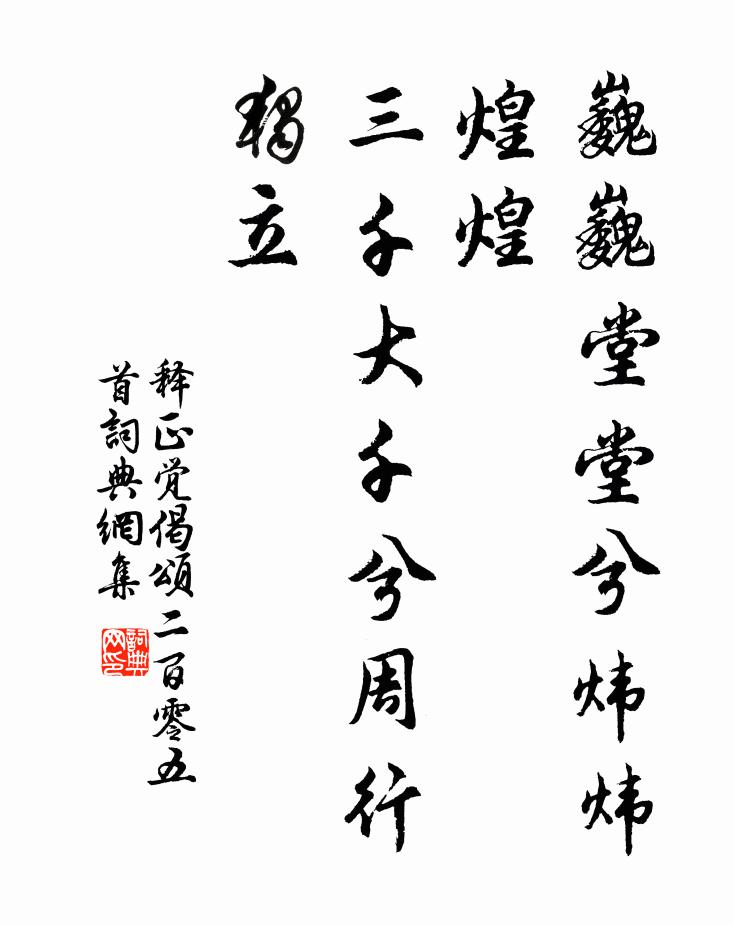 巍巍堂堂兮炜炜
煌煌
三千大千兮周行
獨立
释正觉偈頌二百零五
首詞典網集
詞典网印